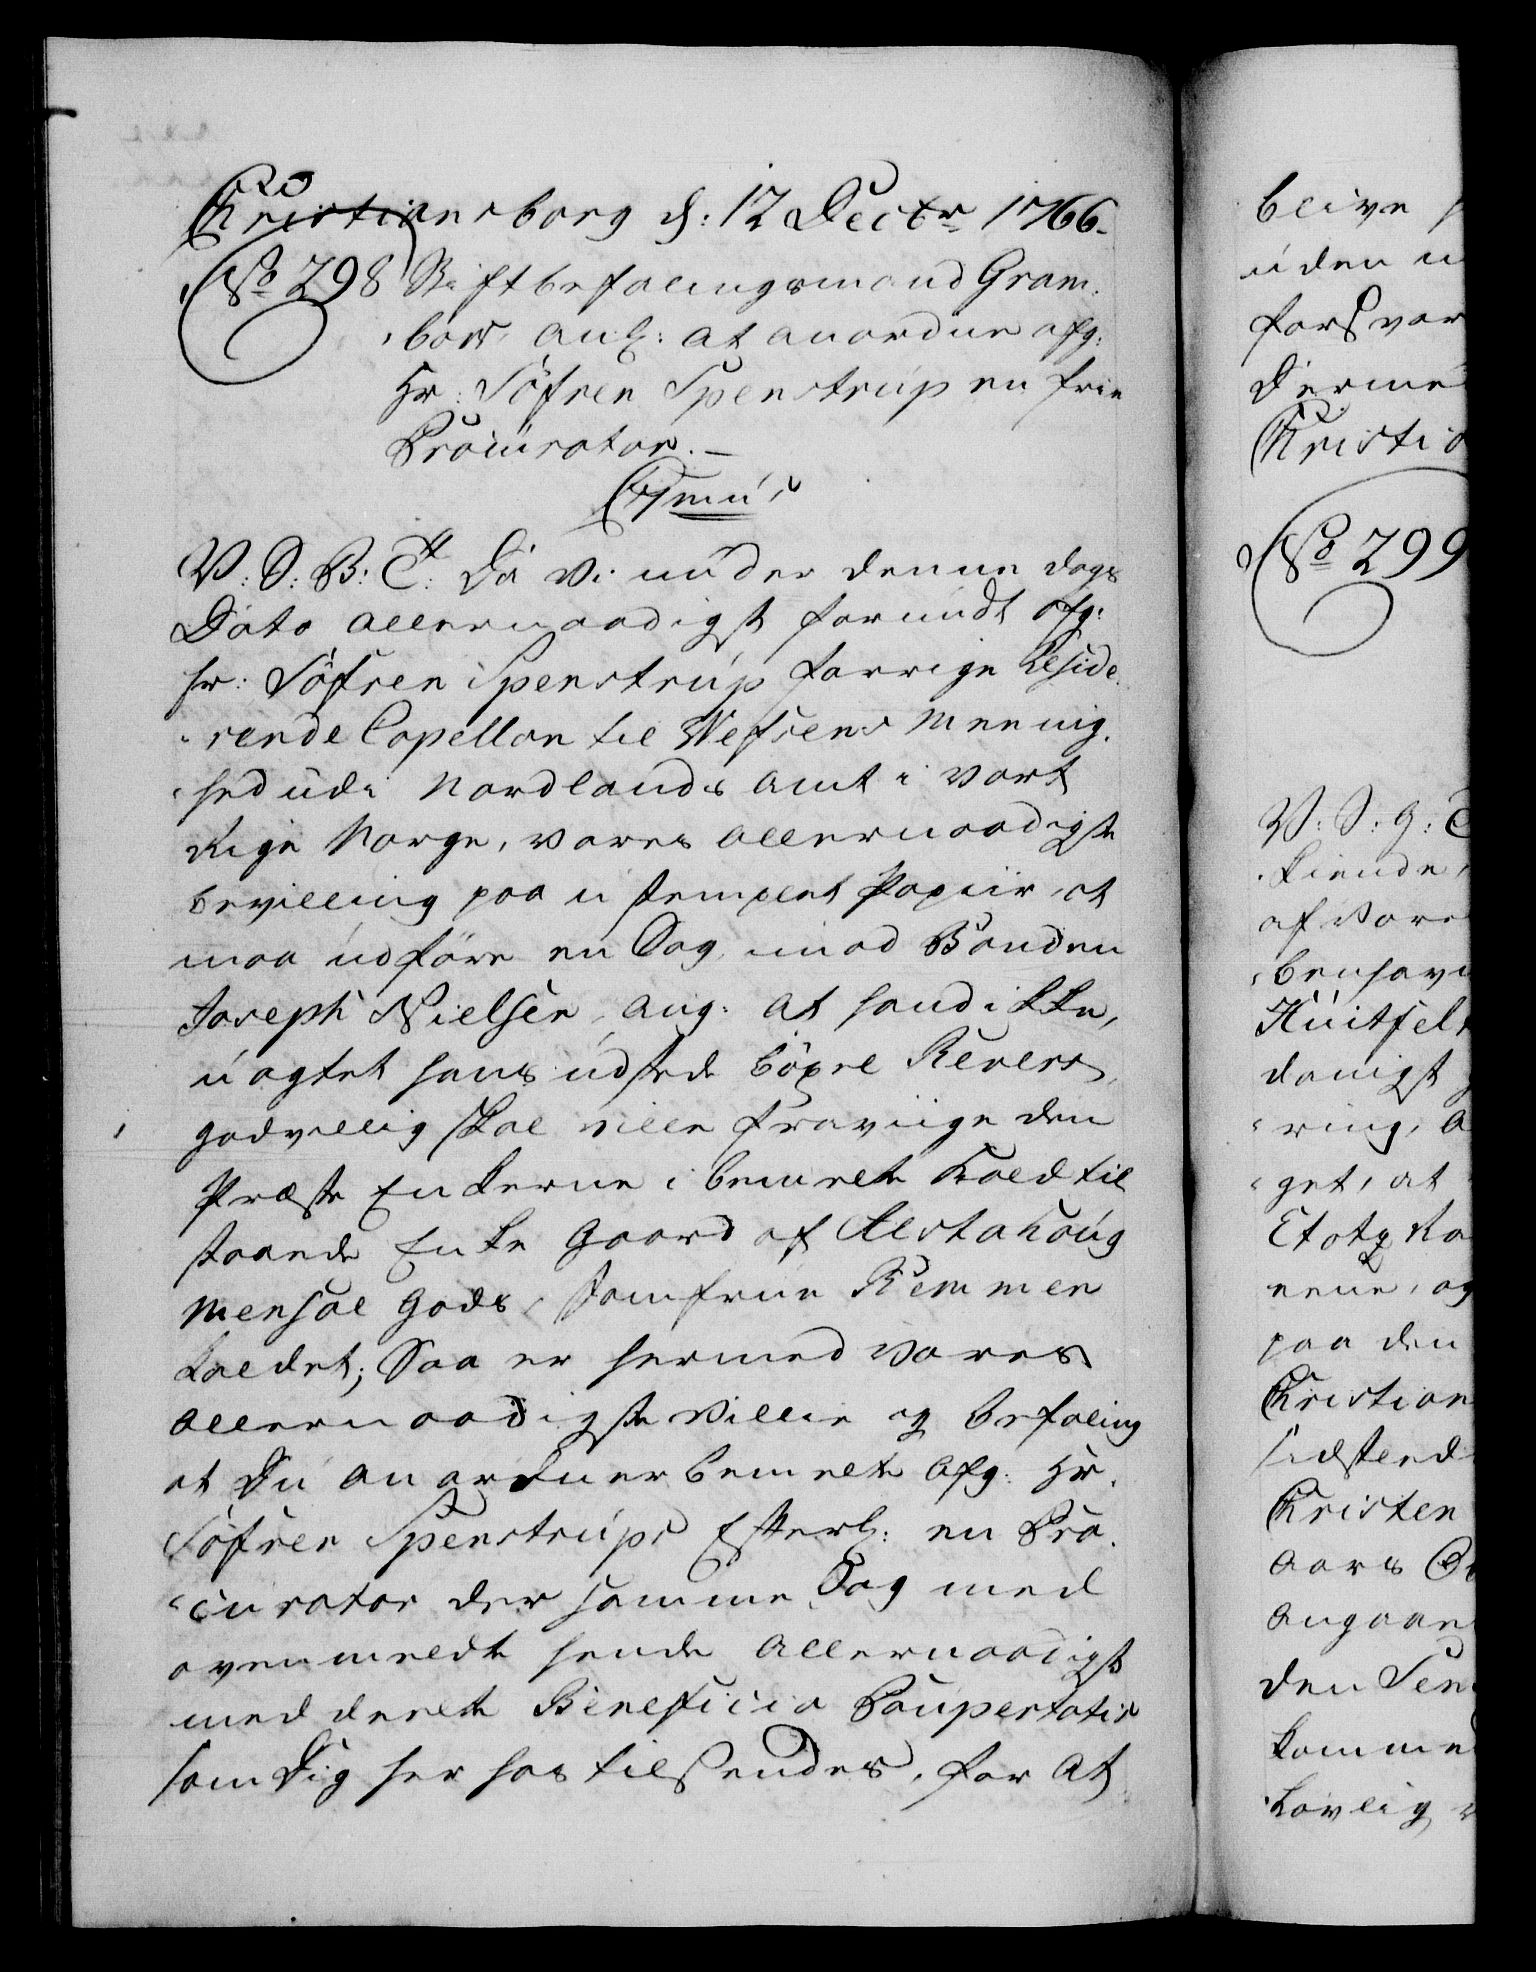 Christiansborg d: 12 Decbr 1766.
No 298 Stiftbefalingsmand Gram-
bow anl: at anordne afg:
Hr: Söfren Spenstrup en frie
Procurator. –
V: S: B: T: Da Vi under denne dags
Dato allernaadigst forundt afg:
hr: Söfren Spenstrup forrige Reside-
rende Capellan til Wefsens Meenig-
hed udi Nordlands Amt i vort
Rige Norge, vores allernaadigste
bevilling paa ustemplet Papiir, at
maa udföre en Sag mod Bonden
Joseph Nielsen, ang: at hand ikke,
uagtet hans udstede Revers,
godvillig skal ville fraviige den
Præste Enkerne i bemelte Kald til
staaende Enke Gaard af Alstahoug
Mensal Gods, Jomfrue Remmen
kaldet; Saa er hermed vores
allernaadigste Villie og befaling
at Du anordner bemelte Afg: Hr.
Söfren Spenstrups Efterl: en Pro-
curator der samme Sag med
ovenmeldte hende allernaadigst
meddeelte Beneficio Paupertatis
som Dig her hos tilsendes, for at
blive
uden
forsvar
Derme
Christia
No 299
V: S: G: T
kiende,
af Vore
benhavn
Huitfel
danigst
ring, A
get, at
Etatz Ra
nene, og
paa den
Christian
sidsteed
Christen
Aars
Angaae
den
komme
lovlig